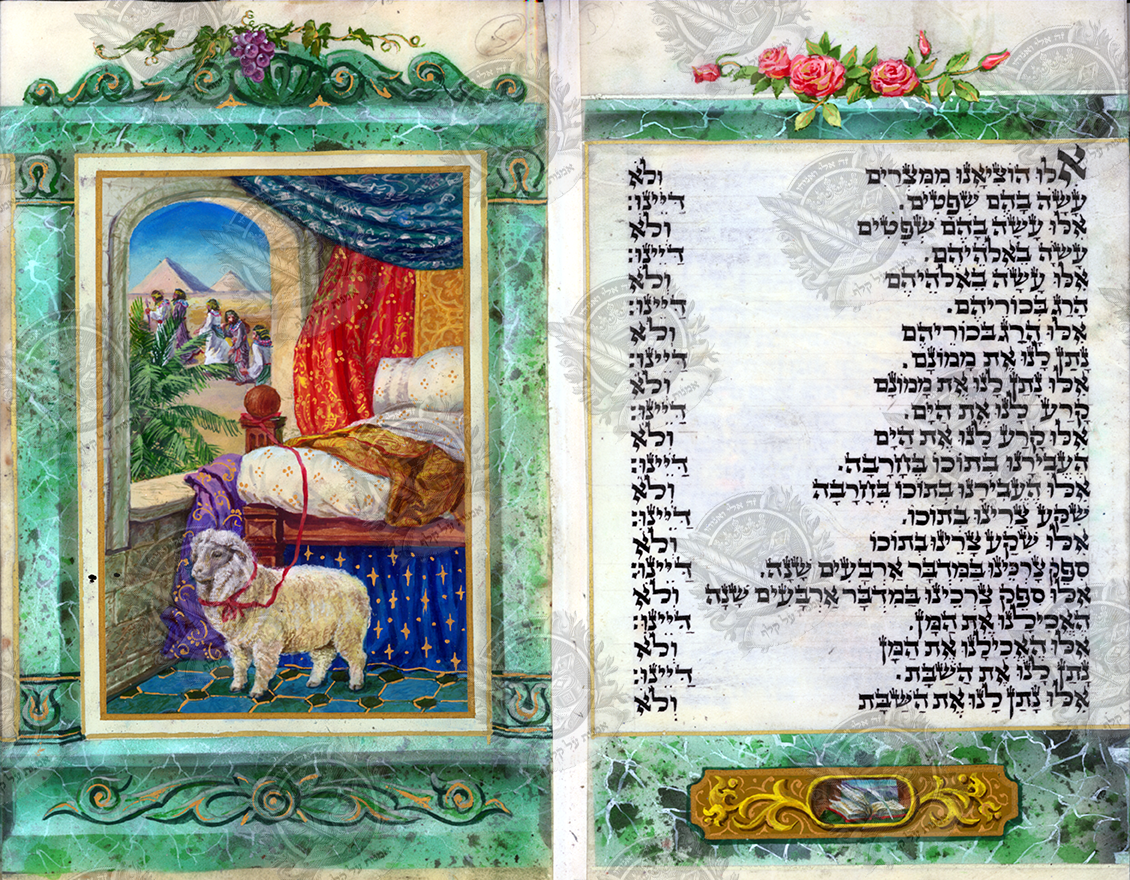 אִלּוּ הוֹצִיאָנוּ מִמִּצְרַיִם וְלֹא
עָשָׂה בָהֶם שְׁפָטִים. דַּיֵּינוּ:
אִלּוּ עָשָׂה בָהֶם שְׁפָטִים וְלֹא
עָשָׂה בֵאלֹהֵיהֶם. דַּיֵּינוּ:
אִלּוּ עָשָׂה בֵאלֹהֵיהֶם וְלֹא
הָרַג בְּכוֹרֵיהֶם. דַּיֵּינוּ:
אִלּוּ הָרַג בְּכוֹרֵיהֶם וְלֹא
נָתַן לָנוּ אֶת מָמוֹנָם. דַּיֵּינוּ:
אִלּוּ נָתַן לָנוּ אֶת מָמוֹנָם וְלֹא
קָרַע לָנוּ אֶת הַיָּם. דַּיֵּינוּ:
אִלּוּ קָרַע לָנוּ אֶת הַיָּם וְלֹא
הֶעֱבִירָנוּ בְתוֹכוֹ בֶּחָרָבָה. דַּיֵּינוּ:
אִלּוּ הֶעֱבִירָנוּ בְתוֹכוֹ בֶּחָרָבָה וְלֹא
שִׁקַּע צָרֵינוּ בְּתוֹכוֹ. דַּיֵּינוּ:
אִלּוּ שִׁקַּע צָרֵינוּ בְּתוֹכוֹ וְלֹא
סִפֵּק צָרְכֵּינוּ בַּמִּדְבָּר אַרְבָּעִים שָׁנָה. דַּיֵּינוּ:
אִלּוּ סִפֵּק צָרְכֵּינוּ בַּמִּדְבָּר אַרְבָּעִים שָׁנָה וְלֹא
הֶאֱכִילָנוּ אֶת הַמָּן. דַּיֵּינוּ:
אִלּוּ הֶאֱכִילָנוּ אֶת הַמָּן וְלֹא
נָתַן לָנוּ אֶת הַשַּׁבָּת. דַּיֵּינוּ:
אִלּוּ נָתַן לָנוּ אֶת הַשַּׁבָּת וְלֹא